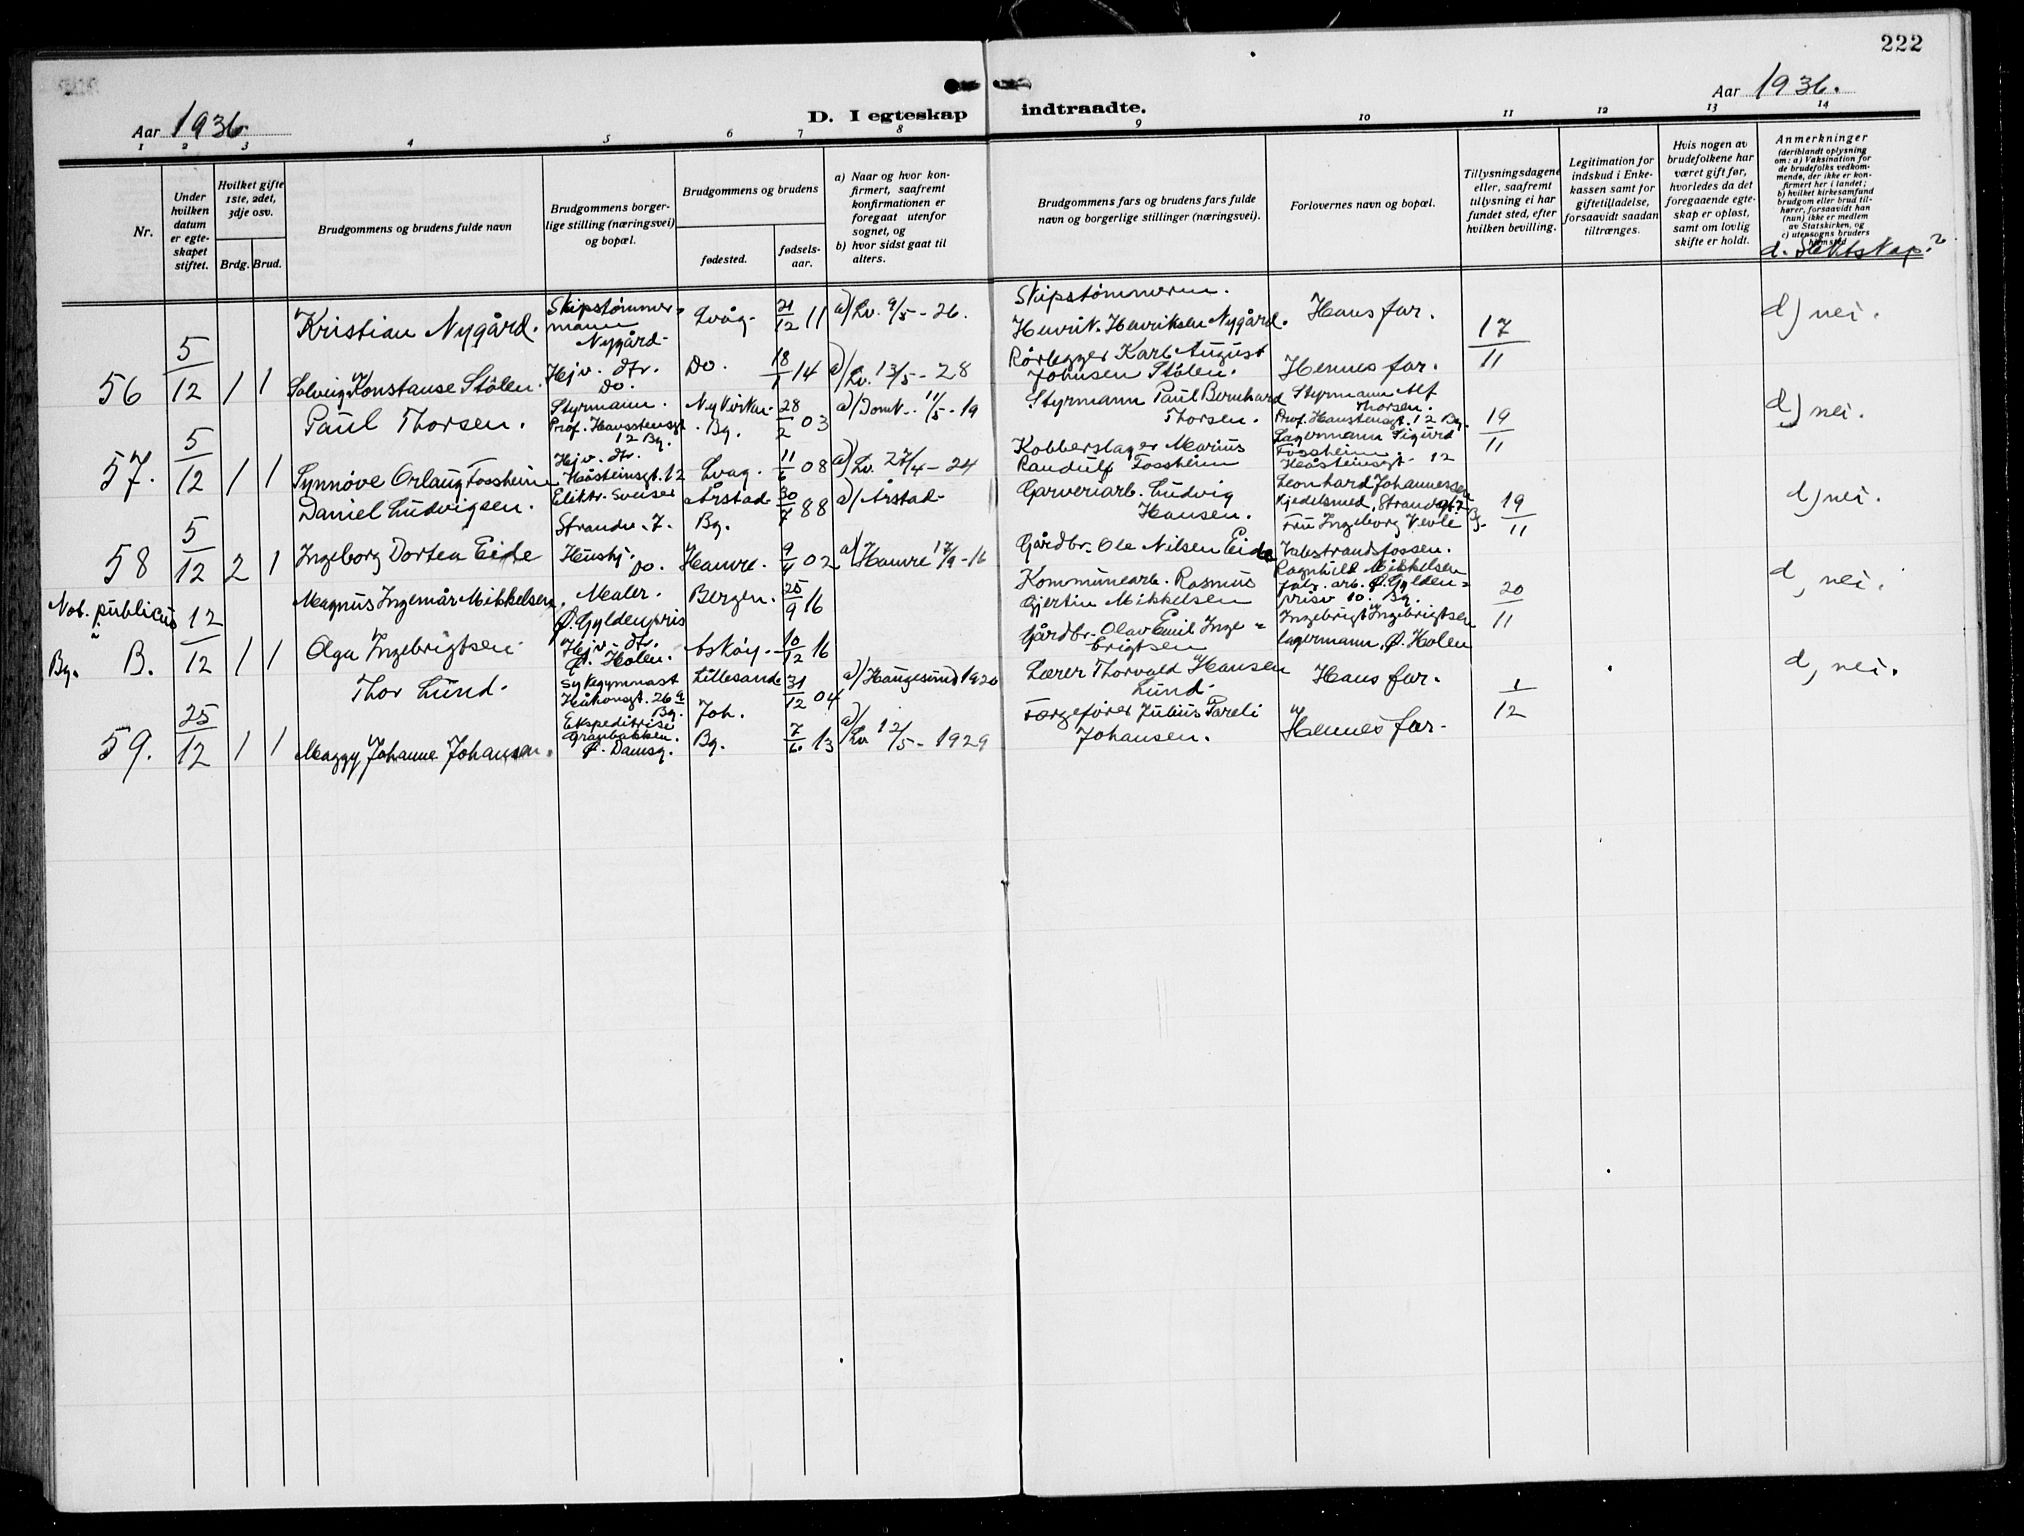 222
Aar 1936.
D. I egteskap indtraadte.
Aar 1936.
1 2 3 4 5 6 7 8 9 10 11 12 13 14
Nr.
Under hvilken datum er egteskapet stiftet.
Hvilket gifte 1ste, 2det, 3dje osv.
Brdg. Brud.
Brudgommens og brudens fulde navn
Brudgommens borgerlige stilling (næringsvei) og bopæl.
Brudgommens og brudens
fødested.
fødselsaar.
a) Naar og hvor konfirmert, saafremt konfirmationen er foregaat utenfor sognet, og
b) hvor sidst gaat til alters.
Brudgommens fars og brudens fars fulde navn og borgerlige stillinger (næringsvei).
Forlovernes navn og bopæl.
Tillysningsdagene eller, saafremt tillysning ei har fundet sted, efter hvilken bevilling.
Legitimation for indskud i Enkekassen samt for giftetilladelse, forsaavidt saadan tiltrænges.
Hvis nogen av brudefolkene har været gift før, hvorledes da det foregaaende egteskap er opløst, samt om lovlig skifte er holdt.
Anmerkninger
(deriblandt oplysning om: a) Vaksination for de brudefolks vedkommende, der ikke er konfirmert her i landet;
b) hvilket kirkesamfund brudgom eller brud tilhører, forsaavidt han (hun) ikke er medlem av Statskirken, og
c) utensogns bruders hjemsted
d. Slektskap?
56 5/12 1 1
Kristian Nygård.
Skipstømmermann Nygård.
Kvåg. 21/12 11
a) Lv. 9/5 - 26.
Skipstømmerm. Henrik Henriksen Nygård.
Hans far.
17/11
d) nei.
Solveig Konstanse Stölen.
Hjv. dtr. Do.
Do. 18/1 14
a) Lv. 13/5 - 28
Rörlegger Karl August Johnsen Stölen.
Hennes far.
57. 5/12 1 1
Paul Thorsen.
Styrmann. Prof. Hansstensgt 12 Bg.
Nykirken. Bg. 28/2 03
a) Domk. 11/5 - 19
Styrmann Paul Bernhard Thorsen.
Styrmann Alf Thorsen. Prof. Hanstensgt. 12 Bg.
19/11
d) nei.
Synnöve Orlaug Fossheim
Hjv. dtr. Håsteinsgt. 12
Lvag. 11/6 08
a) Lv. 27/4 - 24
Kobberslager Marius Randulf Fossheim
Lagermann Sigurd Fossheim. Håsteinsgt. 12
58 5/12 2 1
Daniel Ludvigsen.
Elektr. sveiser Strandv. 7.
Årstad Bg. 30/7 88
a) Årstad.
Garveriarb. Ludvig Hansen.
Leonhard Johannessen Kjedelsmed, Strandgt. Bg.
19/11
d) nei.
Ingeborg Dortea Eide
Hushj. Do.
Hamre. 9/4 02
a) Hamre 17/9 - 16
Gårdbr. Ole Nilsen Eide
Fru Ingeborg Vevle Valestrandsfossen.
Not. publicus
Bg. B. 12/12 1 1
Magnus Ingemår Mikkelsen.
Maler. Ø. Gyldenpris
Bergen. 25/9 16
Kommunearb. Rasmus Gjertin Mikkelsen
Ragnhild Mikkelsen fabr. arb. Ø. Gyldenpris v 10. Bg.
20/11
d, nei.
Olga Ingebrigtsen
Hjv. dtr. Ø. Holen.
Askøy. 10/12 16
Gårdbr. Olav Emil Ingebrigtsen
Ingebrigt Ingebrigtsen lagermann, Ø. Holen
59. 25/12 1 1
Thor Lund.
Sykegymnast Håkonsgt. 26 a Bg.
Lillesand 31/12 04
a) Haugesund 1920
Lærer Thorvald Hansen Lund.
Hans far.
1/12
d, nei.
Maggy Johanne Johansen.
Ekspeditrise Granbakken. Ø. Damsg.
Joh. Bg. 7/6 13
a) Lv 12/5 - 1929
Færgefører Julius Fareli Johansen.
Hennes far.